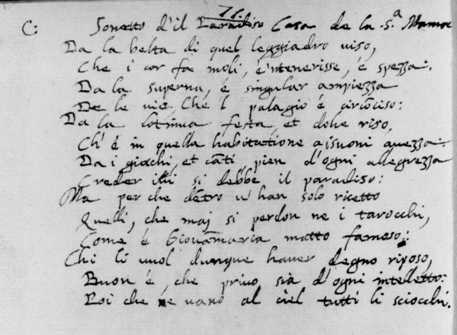 71.
C: Sonetto d'il Paradiso Casa de la S.ª Mamma
Da la belta di quel leggiadro viso,
Che i cor fa moli, é intenerisse, é spezza.
Da la superna, é singular ampiezza
De le vie Che l palagio é circonciso:
Da la cotinua festa et dolce riso,
Ch' é in quella habitatione a i suoni avezza
Da i giochi, et cāti pien d'ogni allegrezza
Creder si debbe il paradiso:
Ma perche dētro u' han solo ricetto
Quelli, che maj si perdon ne i tarocchi,
Come é Giovāmaria matto famoso;
Chi li vuol dunque haver degno riposo,
Buon' é, che privo sià d'ogni intelletto:
Poi che ne vano al ciel tutti li sciocchi.